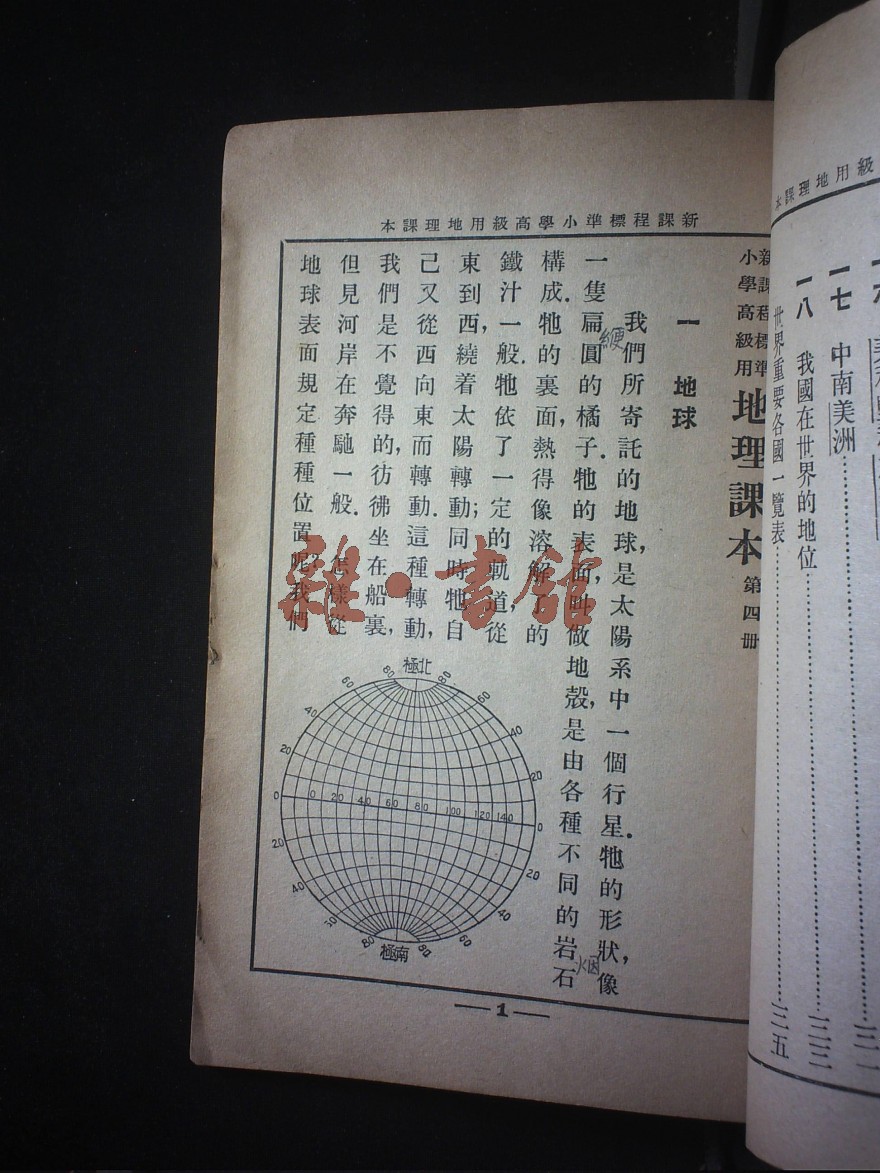 新課程標準小學高級用地理課本
新課程標準
小學高級用
地理課本
第四册
一 地球
我們所寄託的地球,是太陽系中一個行星.牠的形狀,像
一隻扁圓的橘子.牠的表面,叫做地殼,是由各種不同的岩石
構成.牠的裏面,熱得像溶解了的
鐵汁一般.牠依了一定的軌道,從
東到西,繞着太陽轉動;同時牠自
己又從西向東而轉動.這種轉動,
我們是不覺得的,彷彿坐在船裏,
但見河岸在奔馳一般. 怎樣從
地球表面規定種種位置呢?我們
極北
80 80
60 60
40 40
20 20
0 0 20 40 60 80 100 120 140 0
20 20
40 40
60
80 80
極南
1
級用地理課本
一七 中南美洲
一八 我國在世界的地位 三三
世界重要各國一覽表 三五
雜·書館